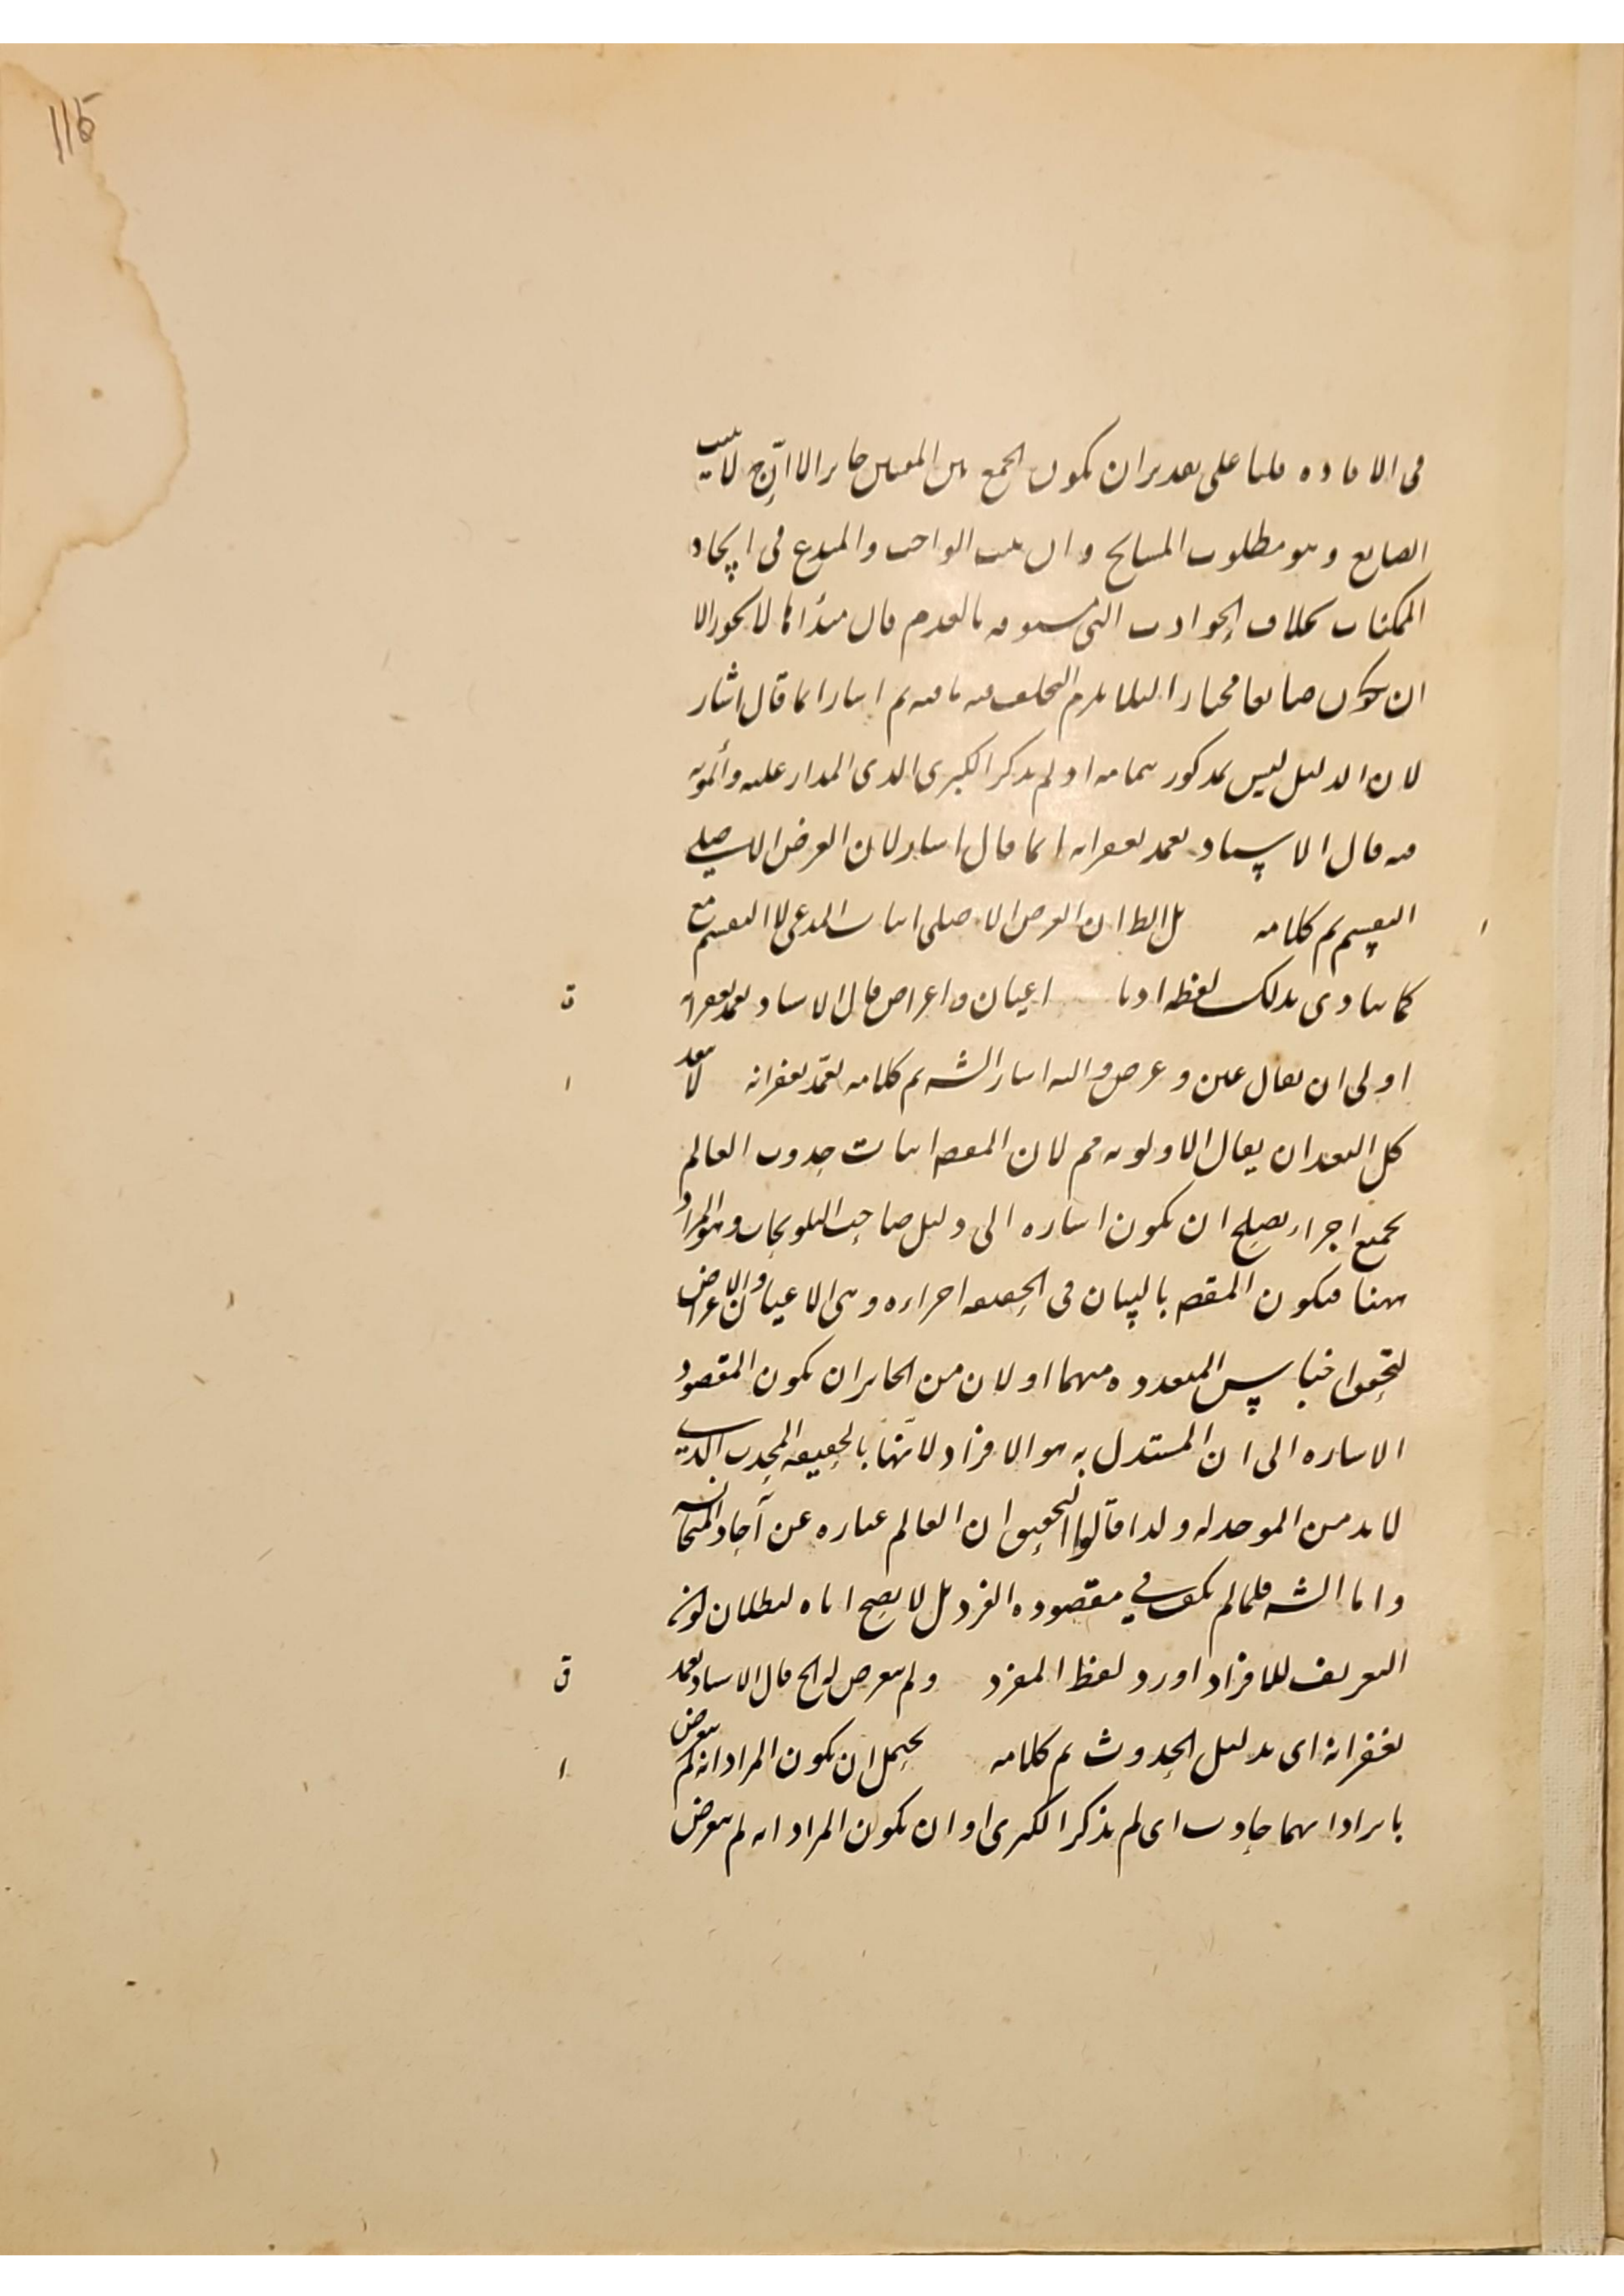 115
فى الافاده قلنا على تقدير ان يكون الجمع بين المعنيين جايرا الا انّ ح لا يثبت
الصانع وهو مطلوب المسايح وان يثبت الواجب والمبدع فى ايجاد
الممكنات بخلاف الحوادث التى مسبوقه بالعدم فان مبدأها لا يجوز الا
ان يكون صانعا مختارا لئلا يلزم التخلف منه ثم اشار انما قال اشار
لان الدليل ليس بمذكور بتمامه اذ لم يذكر الكبرى الذى المدار عليه
منه قال الاستاد تغمد بغفرانه انما قال اشار لان الغرض الاصلى
التقسيم تم كلامه بل الظ ان الغرض الاصلى اثبات المدعى لا التقسيم مع
كما ينادى بذلك لفظه اذ ما اعيان واعراض قال الاستاد تغمد بغفرانه
ق
اولى ان يقال عين وعرض واليه اشار الشه تم كلامه تغمد بغفرانه لا يبعد
ا
كل البعد ان يقال الاولويه مم لان المقصد اثبات حدوث العالم
بجميع اجزاء يصلح ان يكون اشاره الى دليل صاحب التلويحات وهو المراد
ههنا فيكون المقصد بالبيان فى الحقيقه اجزاءه وهى الاعيان والاعراض
لتحقق اجناس المتعدده منهما او لان من الجايز ان يكون المقصود
الاشاره الى ان المستدل به هو الافراد لانها بالحقيقه المحدث الذى
لا بد من الموجد له ولذا قالوا التحقيق ان العالم عباره عن آحاد المتجانسه
واما الشه فلما لم يكف فى مقصوده الفرد بل لا يصح اياه لبطلان كون
التعريف للافراد اورد لفظ المفرد ولم يتعرض له الخ قال الاستاد تغمد
ق
بغفرانه اى بدليل الحدوث تم كلامه يحتمل ان يكون المراد انه لم يتعرض
ا
بايراد انهما حادث اى لم يذكر الكبرى او ان يكون المراد انه لم يتعرض